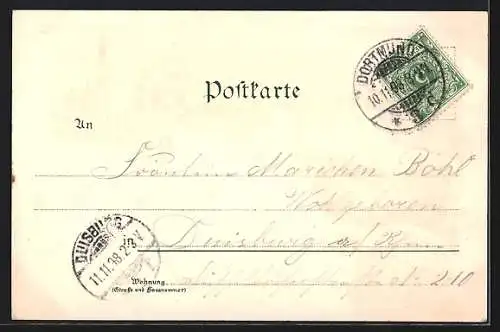 DORTMUND
10.11.98
Postkarte
An
Fräulein Mariechen Böhl
Wohlgeboren
in Duisburg a/Rhein
210
DUISBURG
11.11.98
Wohnung
(Straße und Hausnummer)